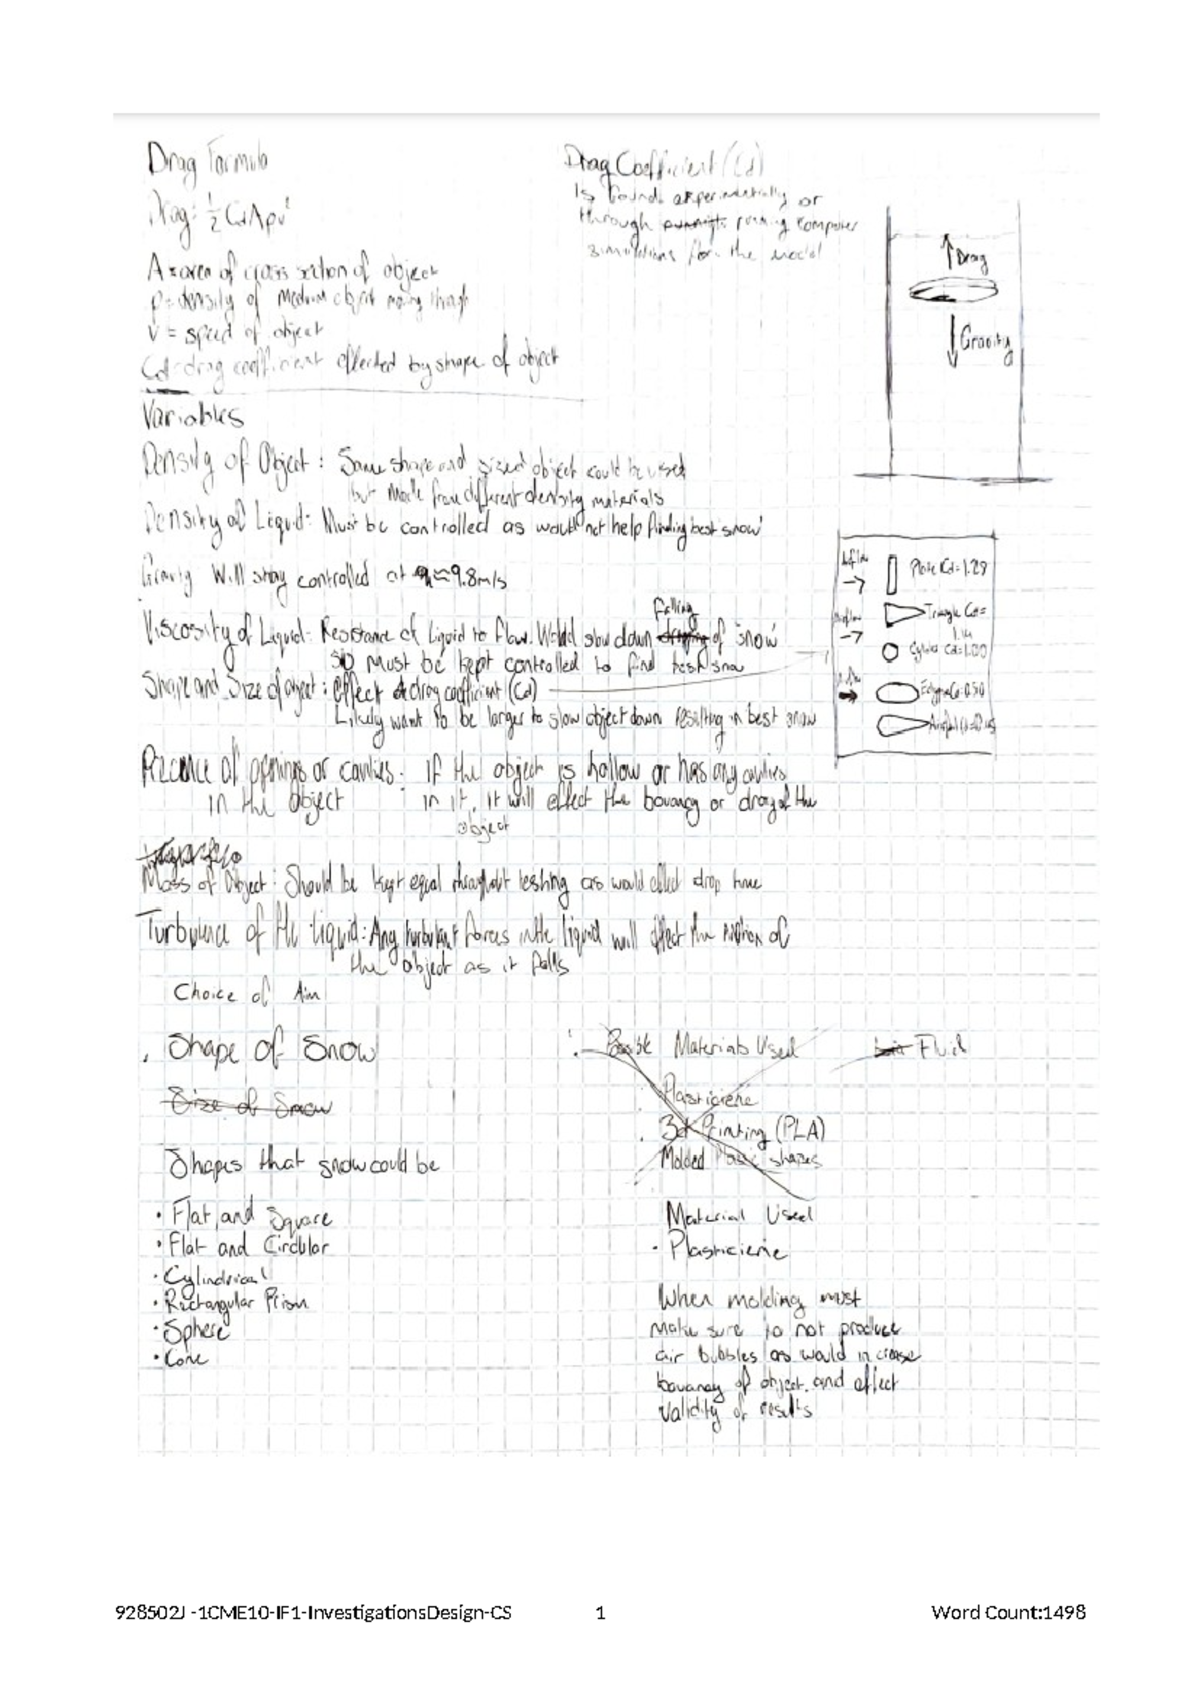 Drag Formula
Drag: ½ CdApv²
A = area of cross section of object
p = density of medium object moving through
v = speed of object
Cd = drag coefficient effected by shape of object
Drag Coefficient (Cd)
Is found experimentally or
through running computer
simulations for the model
Drag
Gravity
Variables
Density of Object: Same shape and sized object could be used
but made from different density materials
Density of Liquid: Must be controlled as would not help finding best 'snow'
Gravity Will stay controlled at ≈9.8m/s
Viscosity of Liquid: Resistance of liquid to flow. Would slow down falling of 'snow'
so must be kept controlled to find best snow
Shape and Size of object: effect drag coefficient (Cd)
Likely want to be larger to slow object down resulting in best snow
Airflow
Plate Cd=1.29
Airflow
Triangle Cd=
1.14
Cd=1.00
Presence of openings or cavities: if the object is hollow or has any cavities
in the object in it, it will effect the bouancy or drag of the
object
Mass of Object: Should be kept equal throughout testing as would effect drop time
Turbulence of the liquid: Any turbulant forces in the liquid will effect the motion of
the object as it falls
Choice of Aim
Shape of Snow
Size of Snow
Shapes that snow could be
• Flat and Square
• Flat and Circular
• Cylindrical
• Rectangular Prism
• Sphere
• Cone
Possible Materials Used
Fluid
Plasticiene
3d Printing (PLA)
Molded Plastic shapes
Material Used
• Plasticiene
When molding must
make sure to not produce
air bubbles as would increase
bouancy of object and effect
validity of results
928502J -1CME10-IF1-InvestigationsDesign-CS 1 Word Count:1498